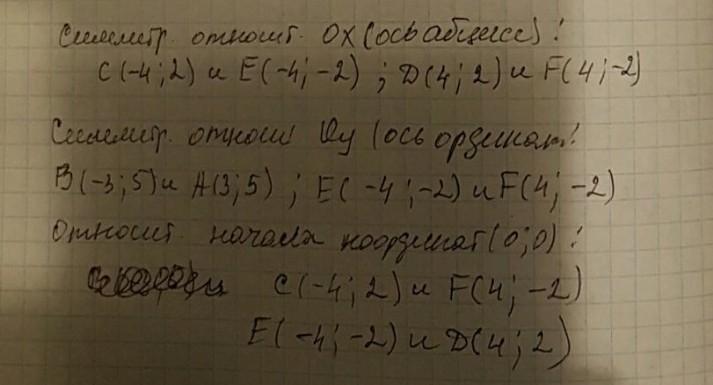 Симметр. относит. Ox (ось абцисс):
C(-4;2) и E(-4;-2) ; D(4;2) и F(4;-2)
Симметр. относи Oy (ось ординат:
B(-3;5) и A(3;5) ; E(-4;-2) и F(4;-2)
Относит. начала координат (0;0):
C(-4;2) и F(4;-2)
E(-4;-2) и D(4;2)